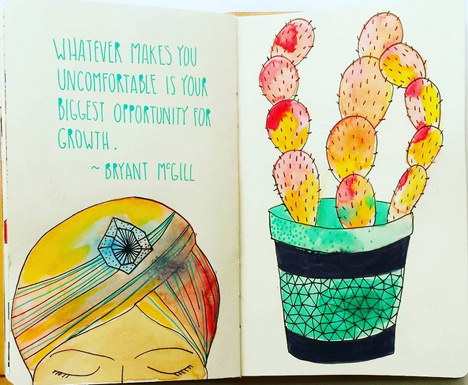 WHATEVER MAKES YOU
UNCOMFORTABLE IS YOUR
BIGGEST OPPORTUNITY FOR
GROWTH.
~ BRYANT McGILL